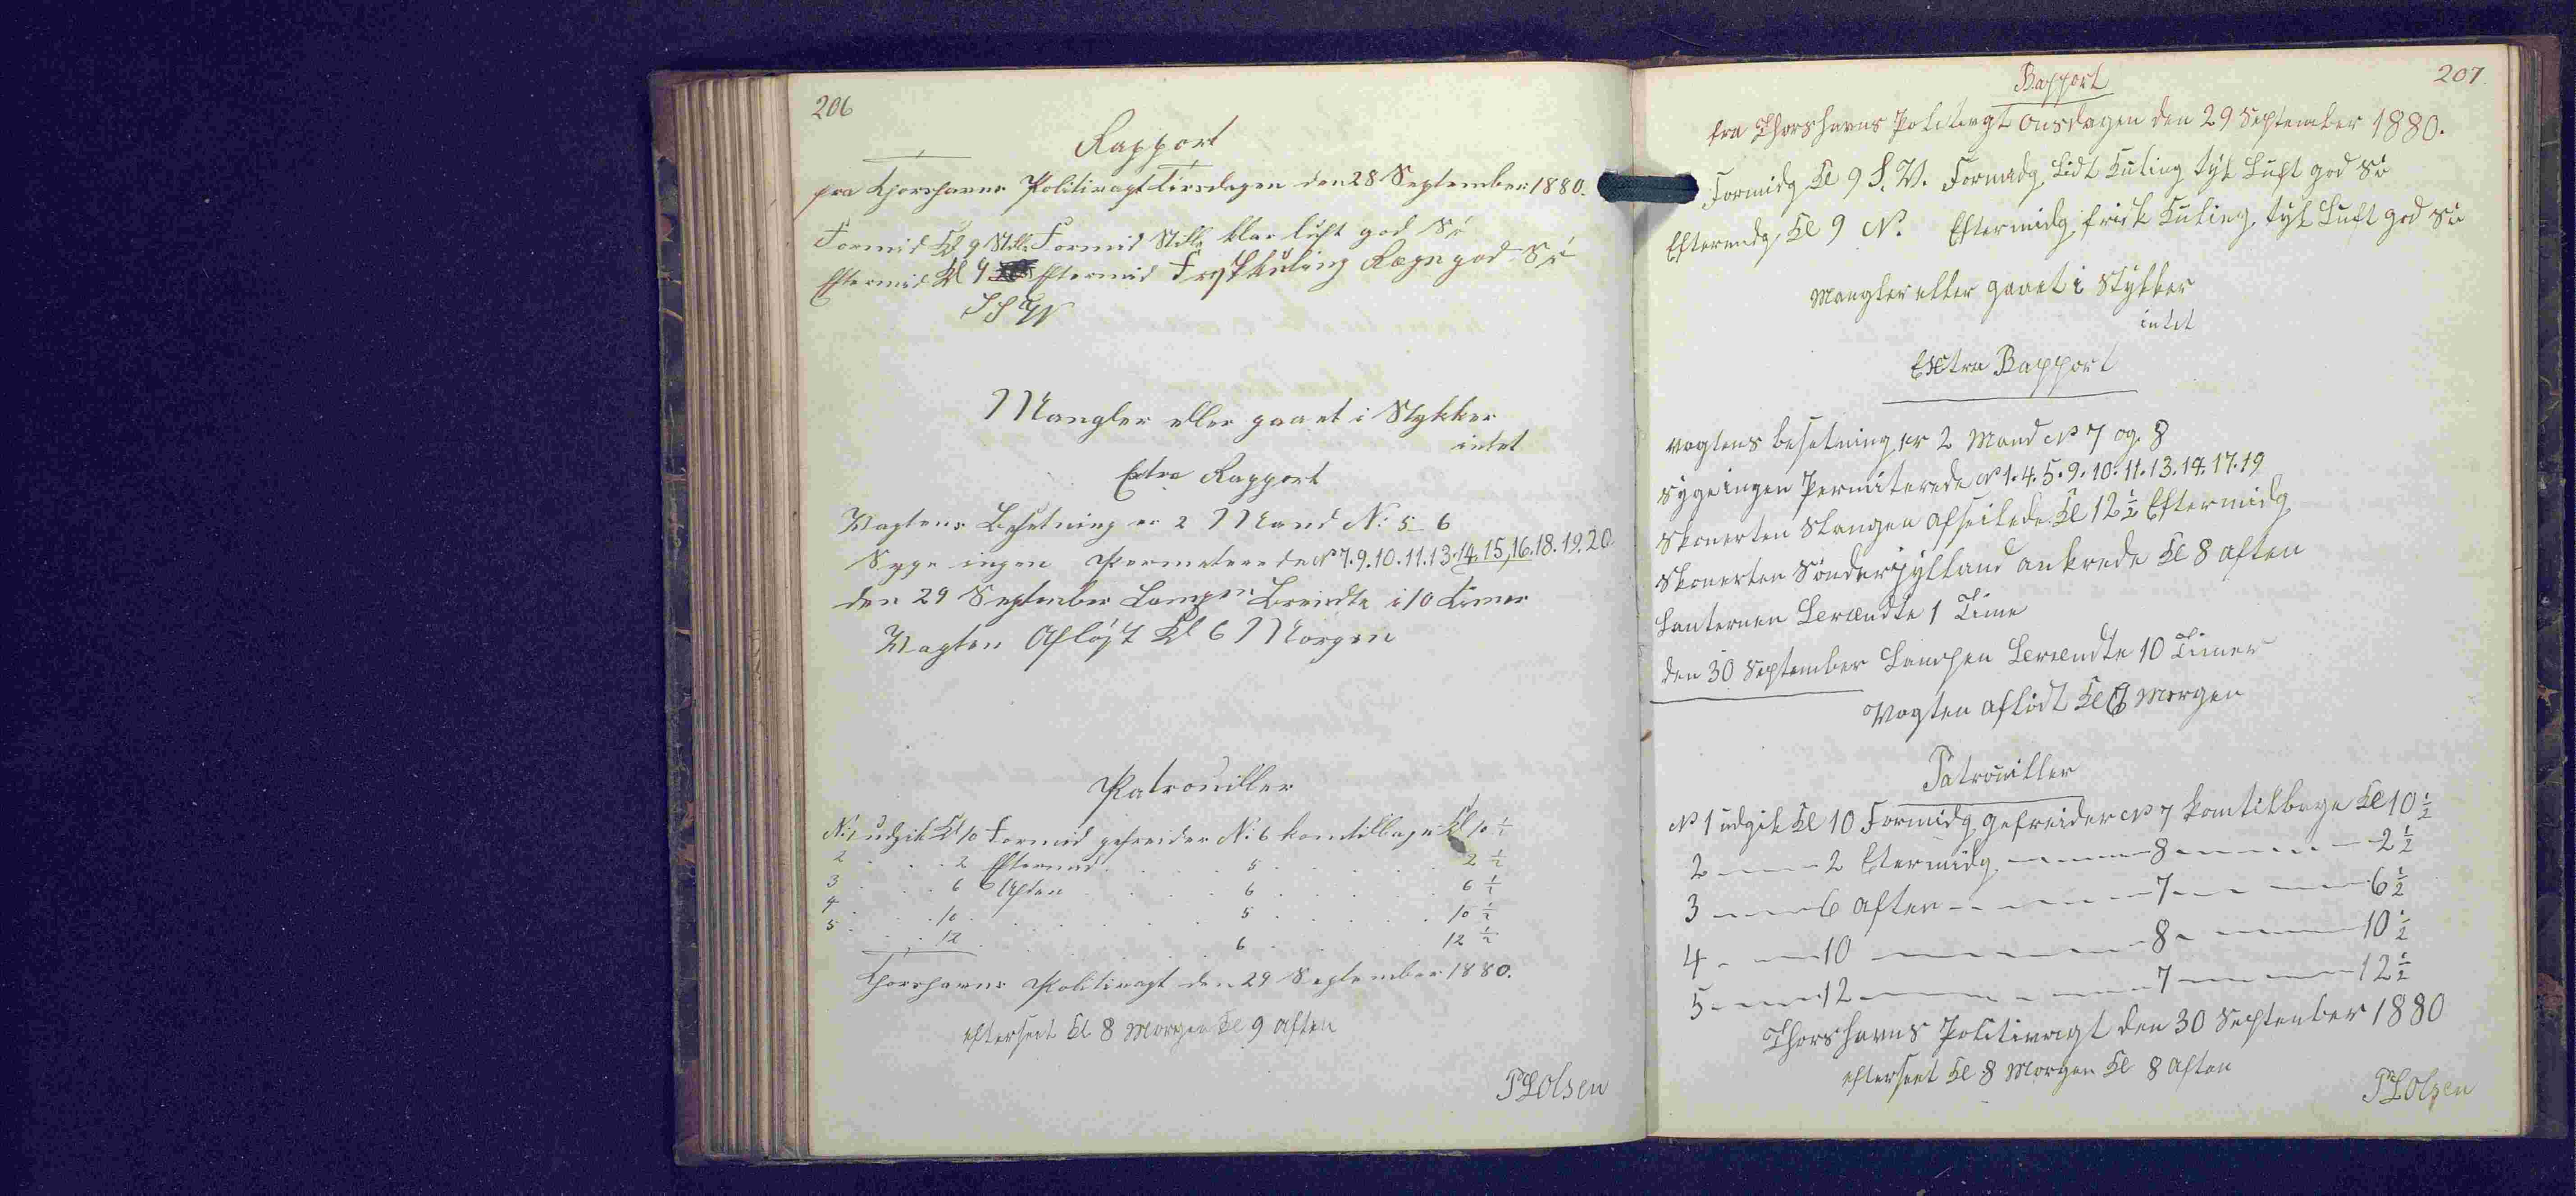 206
Rapport
fra Thorshavns Politivagt Tirsdagen den 28 September 1880.
Formid Kl 9 Stille Formid Stille klar lüft god Sö
Eftermid Kl 9 Eftermid Frisk Kuling Regn god Sö
Mangler eller gaaet i Stykker
intet
Extra Rapport
Vagtens Besetning er 2 Mand No 5 6
Syge ingen Permeterede No 7. 9. 10. 11. 13. 14. 15, 16. 18. 19. 20.
den 29 September Lampen Brendte i 10 Timer
Vagten Afløst Kl 6 Morgen
Patrouiller
No 1 udgik Kl 10 Formid gefreider No 6 kom tilbage Kl 10 1/2
2 . . . 2 Eftermid . . . 5 . . . 2 1/2
3 . . . 6 Aften . . . 6 . . . 6 1/2
4 . . . 10 . . . 5 . . . 10 1/2
5 . . . 12 . . . 6 . . . 12 1/2
Thorshavns Politivagt den 29 September 1880.
efterseet Kl 8 Morgen Kl 9 Aften
Olsen
207.
Rapport
fra Thorshavns Politivagt Onsdagen den 29 September 1880.
Formidg Kl 9 S. V. Formidg Lidt Kuling tyk Luft god Sö
Eftermidg Kl 9 N. Eftermidg frisk Kuling, tyk Luft god Sö
Mangler eller gaaet i Stykker
intet
Extra Rapport
Vagtens besetning er 2 Mand No 7 og 8
Syge ingen Permiterede No 1. 4. 5. 9. 10. 11. 13. 14. 17. 19
Skonerten Slangen afseilede Kl 12 1/2 Eftermidg
Skonerten Sönderjylland ankrede Kl 8 Aften
Lanternen Brændte 1 Time
den 30 September Lampen Brændte 10 Timer
Vagten aflöst Kl 6 Morgen
Patrouiller
No 1 udgik Kl 10 Formidg gefreider No 7 kom tilbage Kl 10 1/2
2 — — 2 Etermidg — — 8 — — 2 1/2
3 — — 6 Aften — — 7 — — 6 1/2
4 — — 10 — — 8 — — 10 1/2
5 — — 12 — — 7 — — 12 1/2
Thorshavns Politivagt den 30 September 1880
efterseet Kl 8 Morgen Kl 8 Aften
Olsen